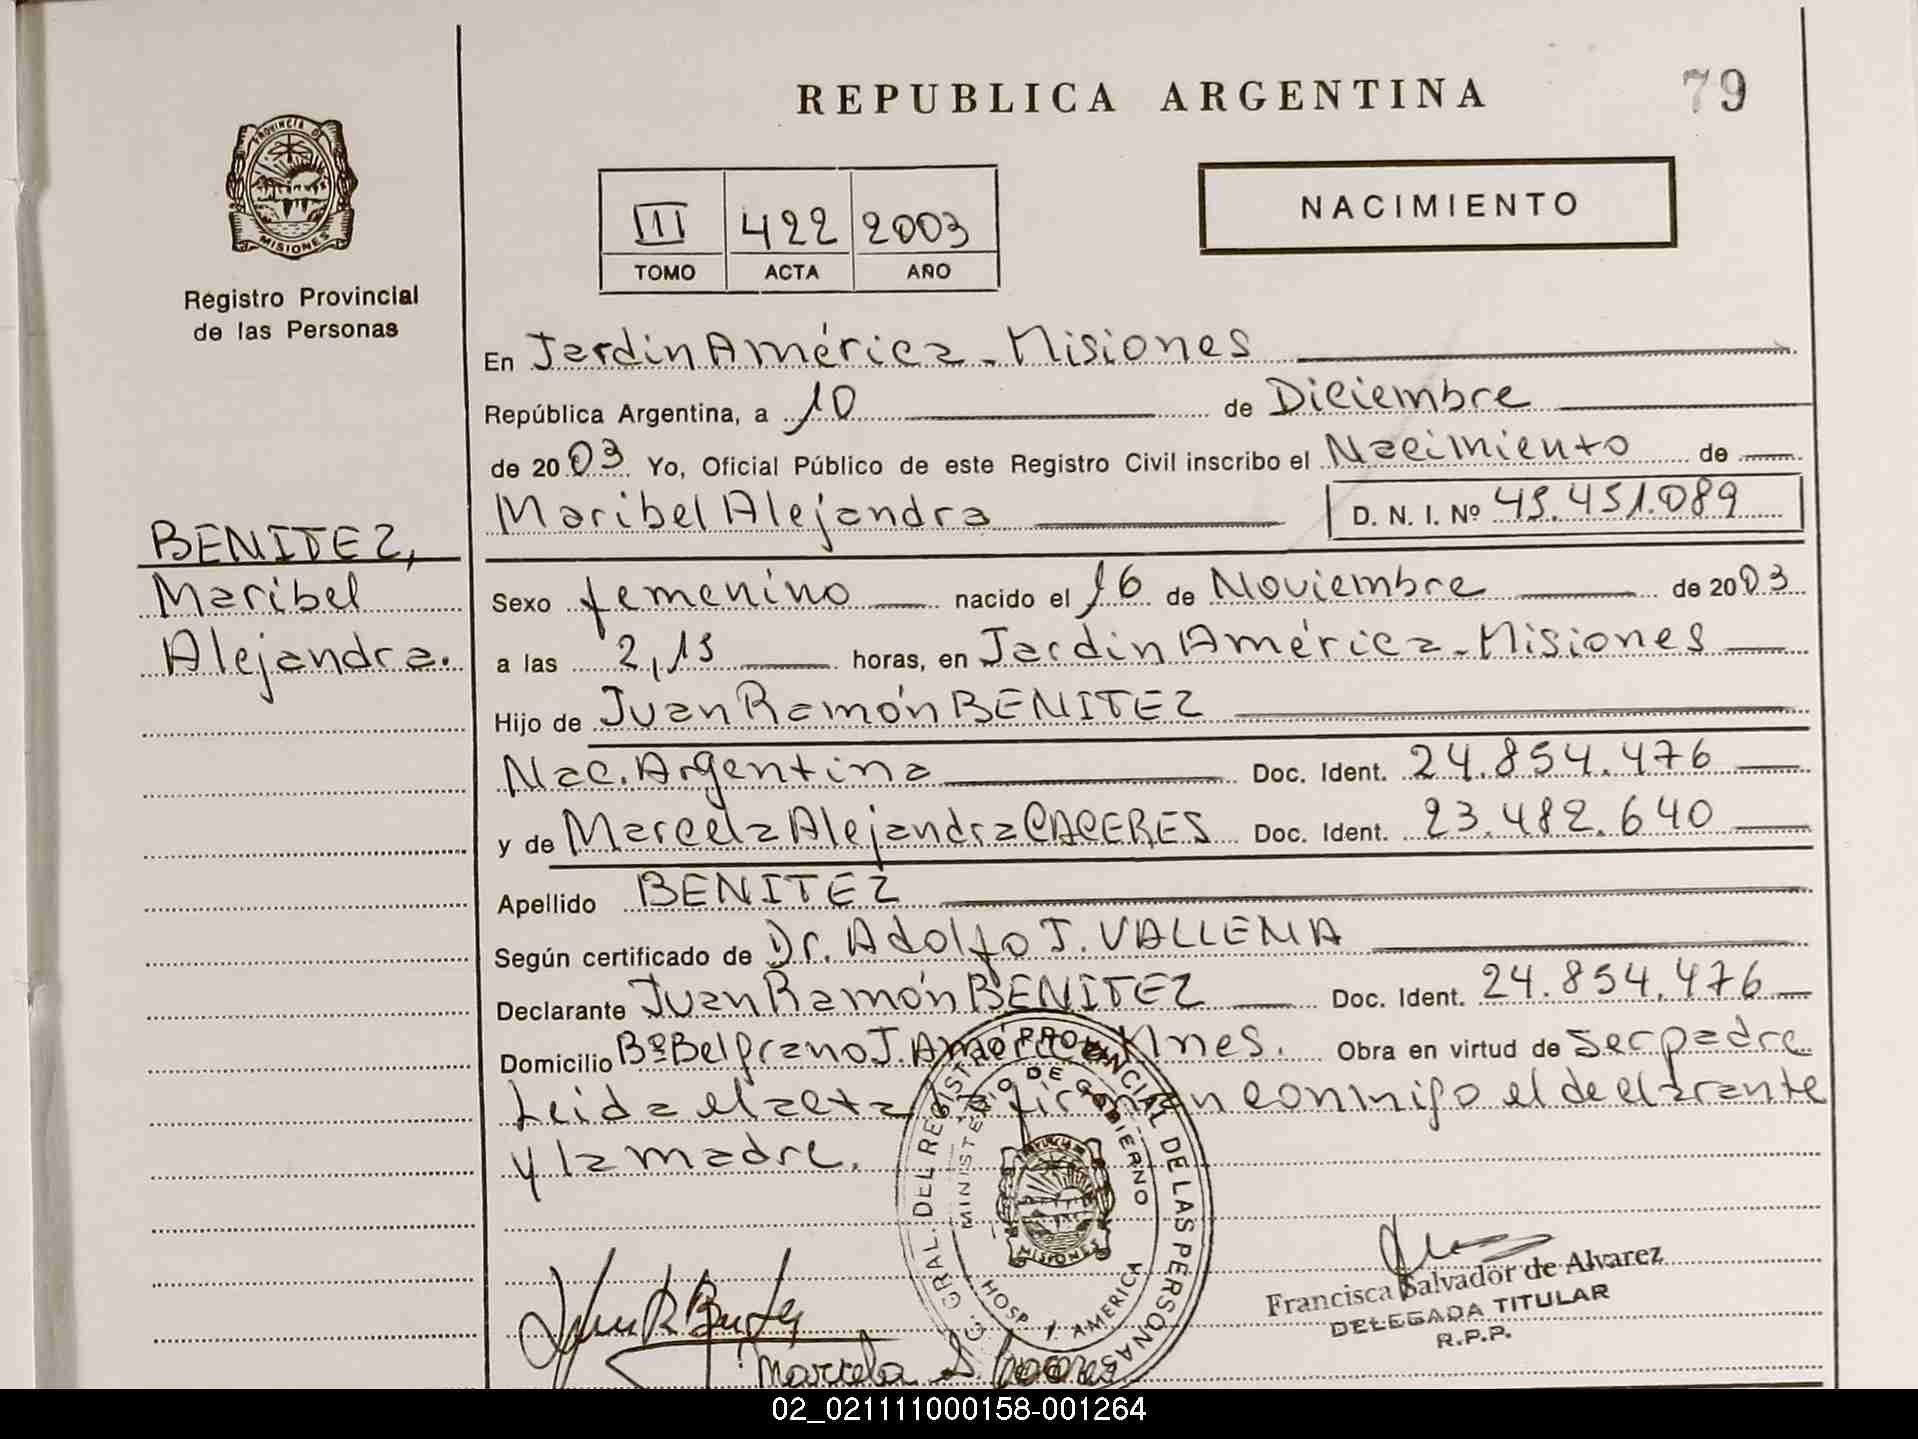 REPUBLICA ARGENTINA
79
PROVINCIA DE
MISIONES
Registro Provincial
de las Personas
III 422 2003
TOMO ACTA AÑO
NACIMIENTO
En Jardin América - Misiones
República Argentina, a 10 de Diciembre
de 2003 Yo, Oficial Público de este Registro Civil inscribo el Nacimiento de
Maribel Alejandra D. N. I. Nº 45.451.089
BENITEZ,
Maribel
Alejandra.
Sexo femenino nacido el 16 de Noviembre de 2003
a las 2,15 horas, en Jardin América - Misiones
Hijo de Juan Ramón BENITEZ
Nac. Argentina Doc. Ident. 24.854.476
y de Marcela Alejandra CACERES Doc. Ident. 23.482.640
Apellido BENITEZ
Según certificado de Dr. Adolfo J. VALLEMA
Declarante Juan Ramón BENITEZ Doc. Ident. 24.854.476
Domicilio Bº Belgrano J. América Mnes. Obra en virtud de ser padre
Leida el acta la firman conmigo el declarante
y la madre.
GRAL. DEL REGISTRO PROVINCIAL DE LAS PERSONAS
MINISTERIO DE GOBIERNO
MISIONES
HOSP. J. AMERICA
Francisca Salvador de Alvarez
DELEGADA TITULAR
R.P.P.
Marcela A. Caceres
02_021111000158-001264